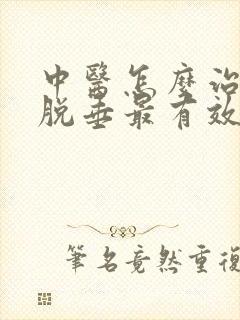 中醫怎麼治
脱垂最有效
筆名竟然重複